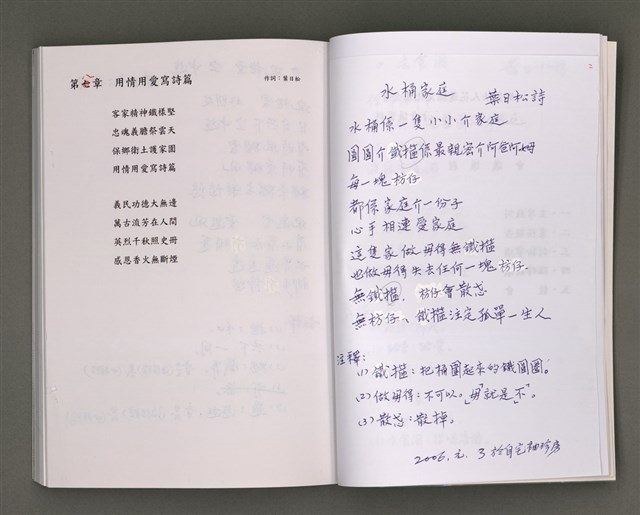 第七章 用情用愛寫詩篇
作詞：葉日松
客家精神鐵樣堅
忠魂義膽祭雲天
保鄉衛土護家園
用情用愛寫詩篇
義民功德大無邊
萬古流芳在人間
英烈千秋照史冊
感恩香火無斷煙
水桶家庭
葉日松詩
水桶係一隻小小介家庭
圓圓介鐵箍係最親密介阿爸阿姆
每一塊枋仔
都係家庭介一份子
心手相連愛家庭
這隻家做毋得無鐵箍
也做毋得失去任何一塊枋仔．
無鐵箍，枋仔會散忒
無枋仔、鐵箍注定孤單一生人
注釋：
(1) 鐵箍：把桶圍起來的鐵圓圈。
(2) 做毋得：不可以。「毋」就是「不」。
(3) 散忒：散掉。
2006．元．3 於自宅